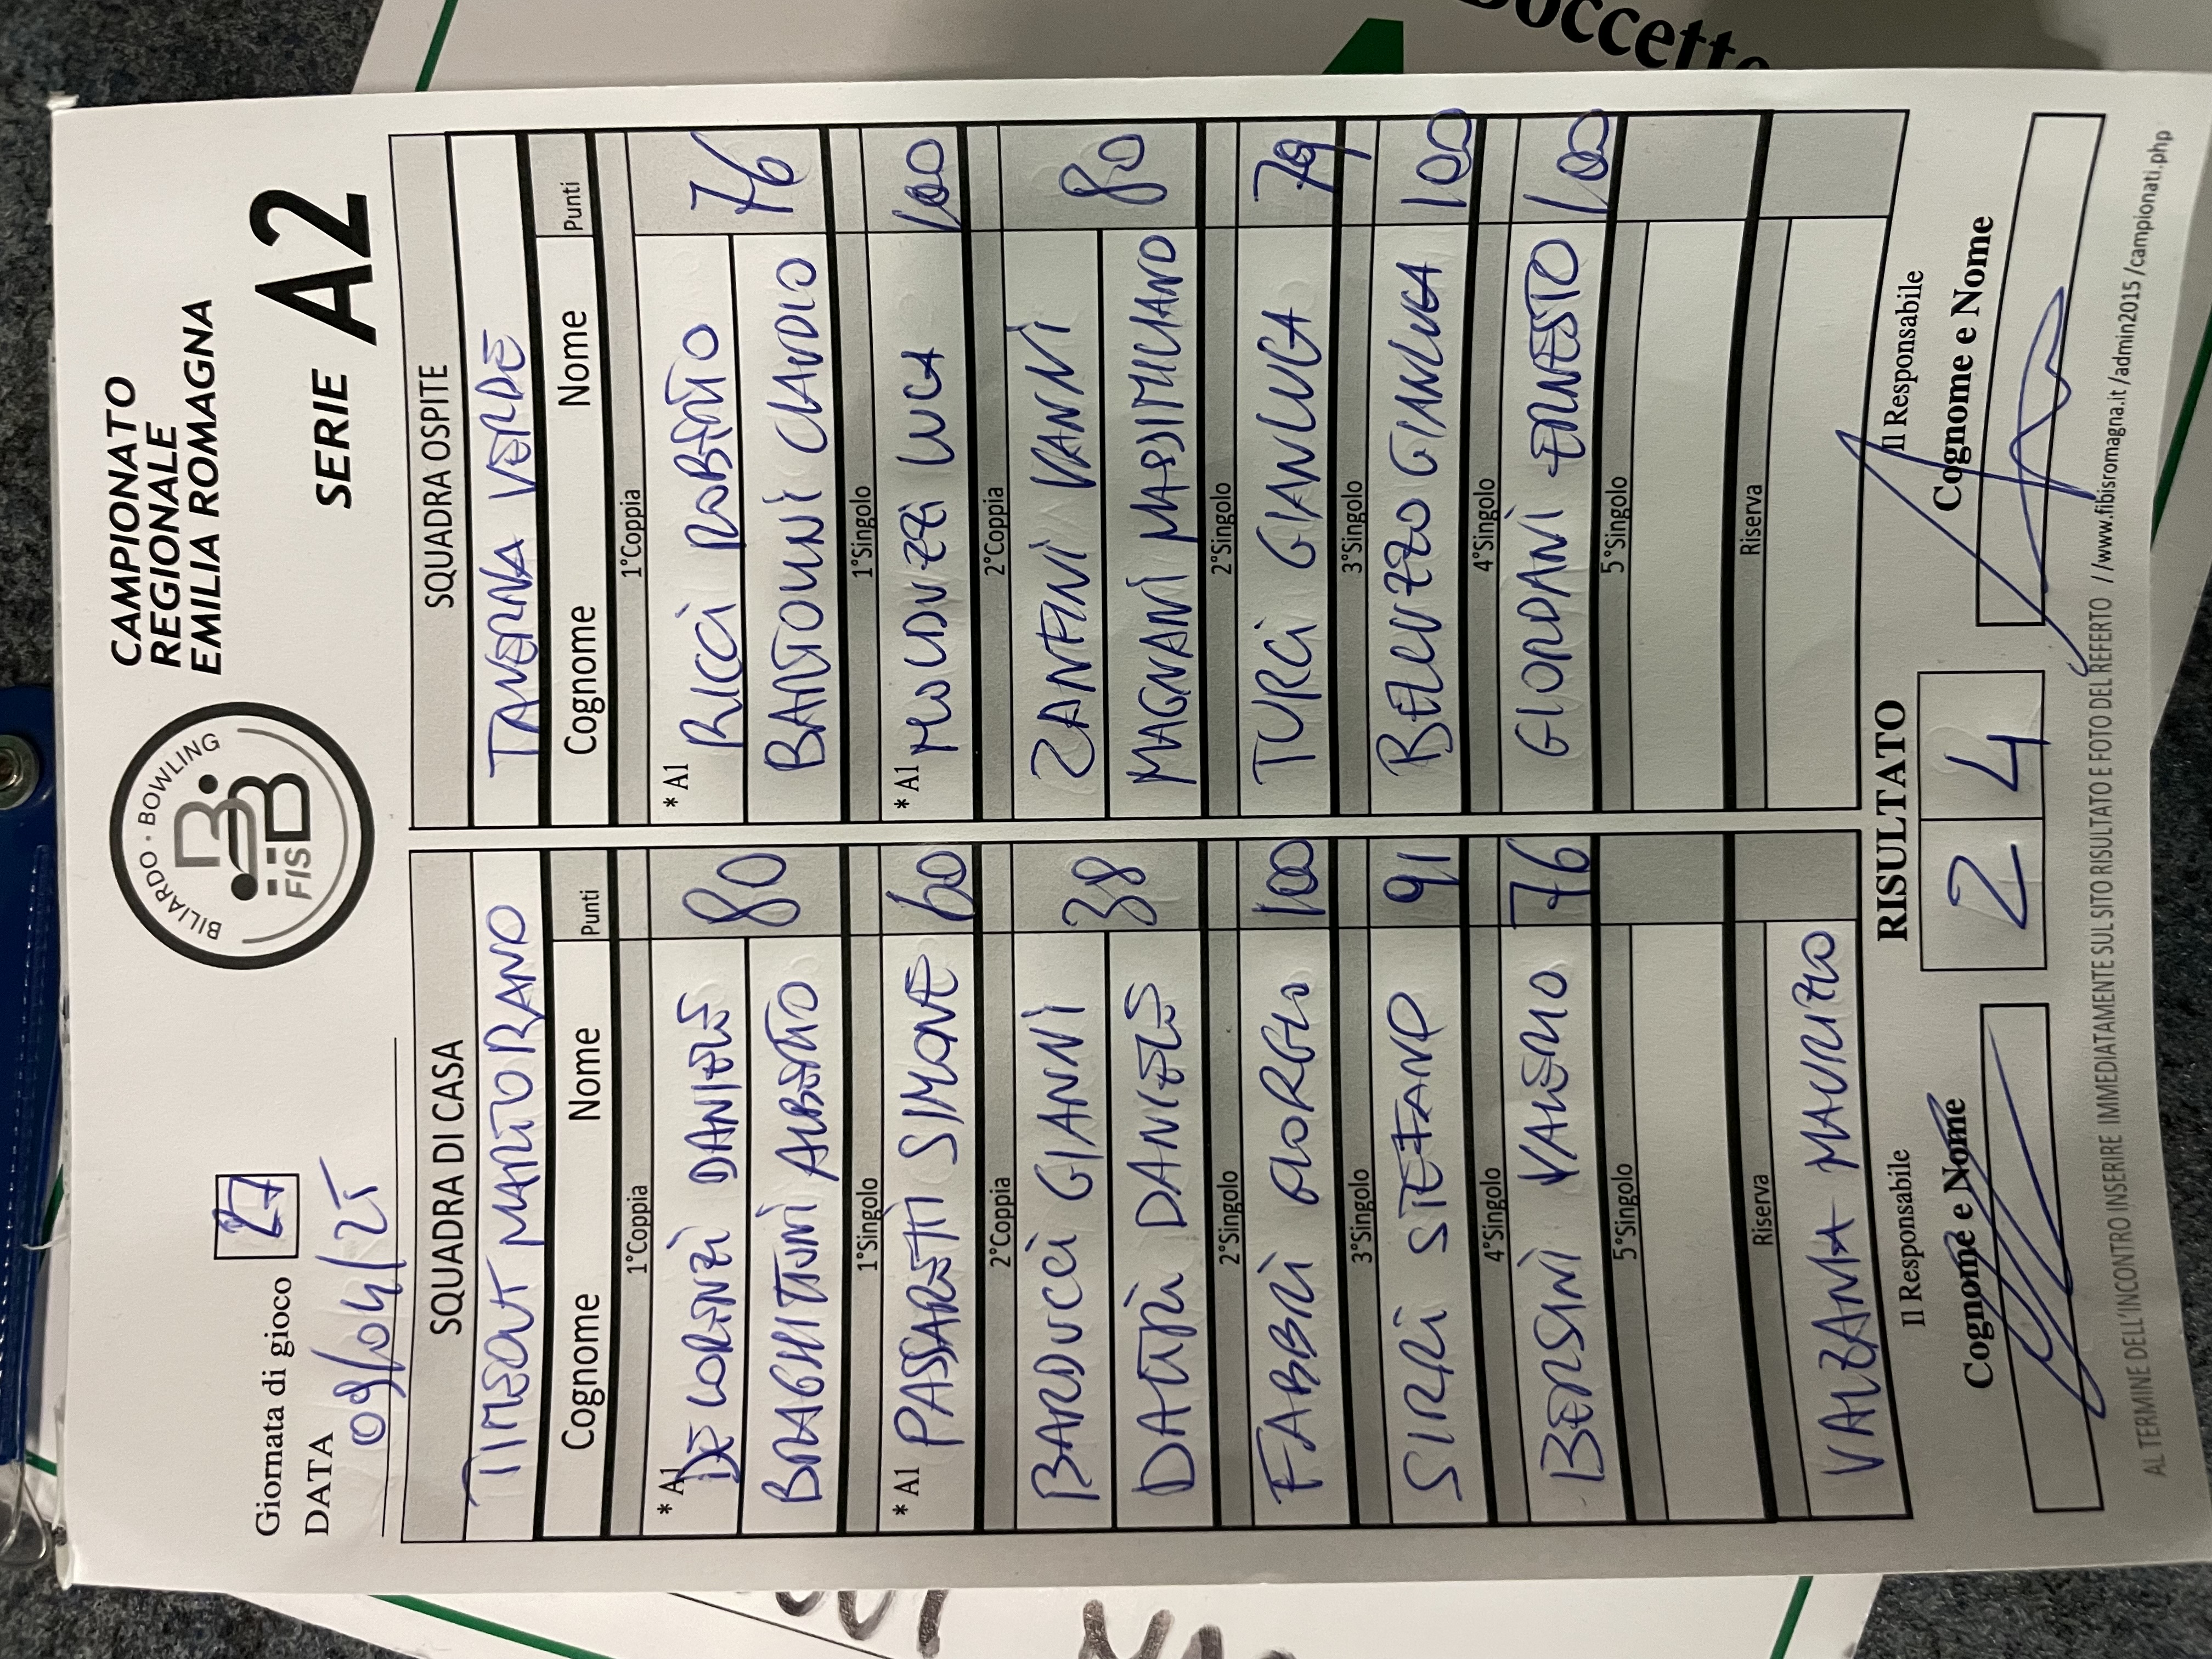 Boccette
CAMPIONATO
REGIONALE
EMILIA ROMAGNA
BILIARDO · BOWLING
FISBB
SERIE A2
Giornata di gioco 27
DATA
09/04/25
SQUADRA DI CASA SQUADRA OSPITE
TIMEOUT MARTORANO TAVERNA VERDE
Cognome Nome Punti Cognome Nome Punti
1°Coppia 1°Coppia
* A1 DE LORENZI DANIELE 80 * A1 RICCI ROBERTO 76
BRAGHITTONI ALBERTO BARTOLINI CLAUDIO
1°Singolo 1°Singolo
* A1 PASSARETTI SIMONE 60 * A1 LUCA 100
2°Coppia 2°Coppia
BARDUCCI GIANNI 38 ZANFINI VANNI 80
DANIELE MAGNANI MASSIMILIANO
2°Singolo 2°Singolo
FABBRI GIORGIO 100 TURCI GIANLUCA 79
3°Singolo 3°Singolo
SIRRI STEFANO 91 BELLUZZO GIANLUCA 100
4°Singolo 4°Singolo
BERSANI VALERIO 76 GIORDANI ERNESTO 100
5°Singolo 5°Singolo
Riserva Riserva
VALZANIA MAURIZIO
Il Responsabile RISULTATO Il Responsabile
Cognome e Nome 2 4 Cognome e Nome
AL TERMINE DELL'INCONTRO INSERIRE IMMEDIATAMENTE SUL SITO RISULTATO E FOTO DEL REFERTO //www.fibisromagna.it /admin2015 /campionati.php